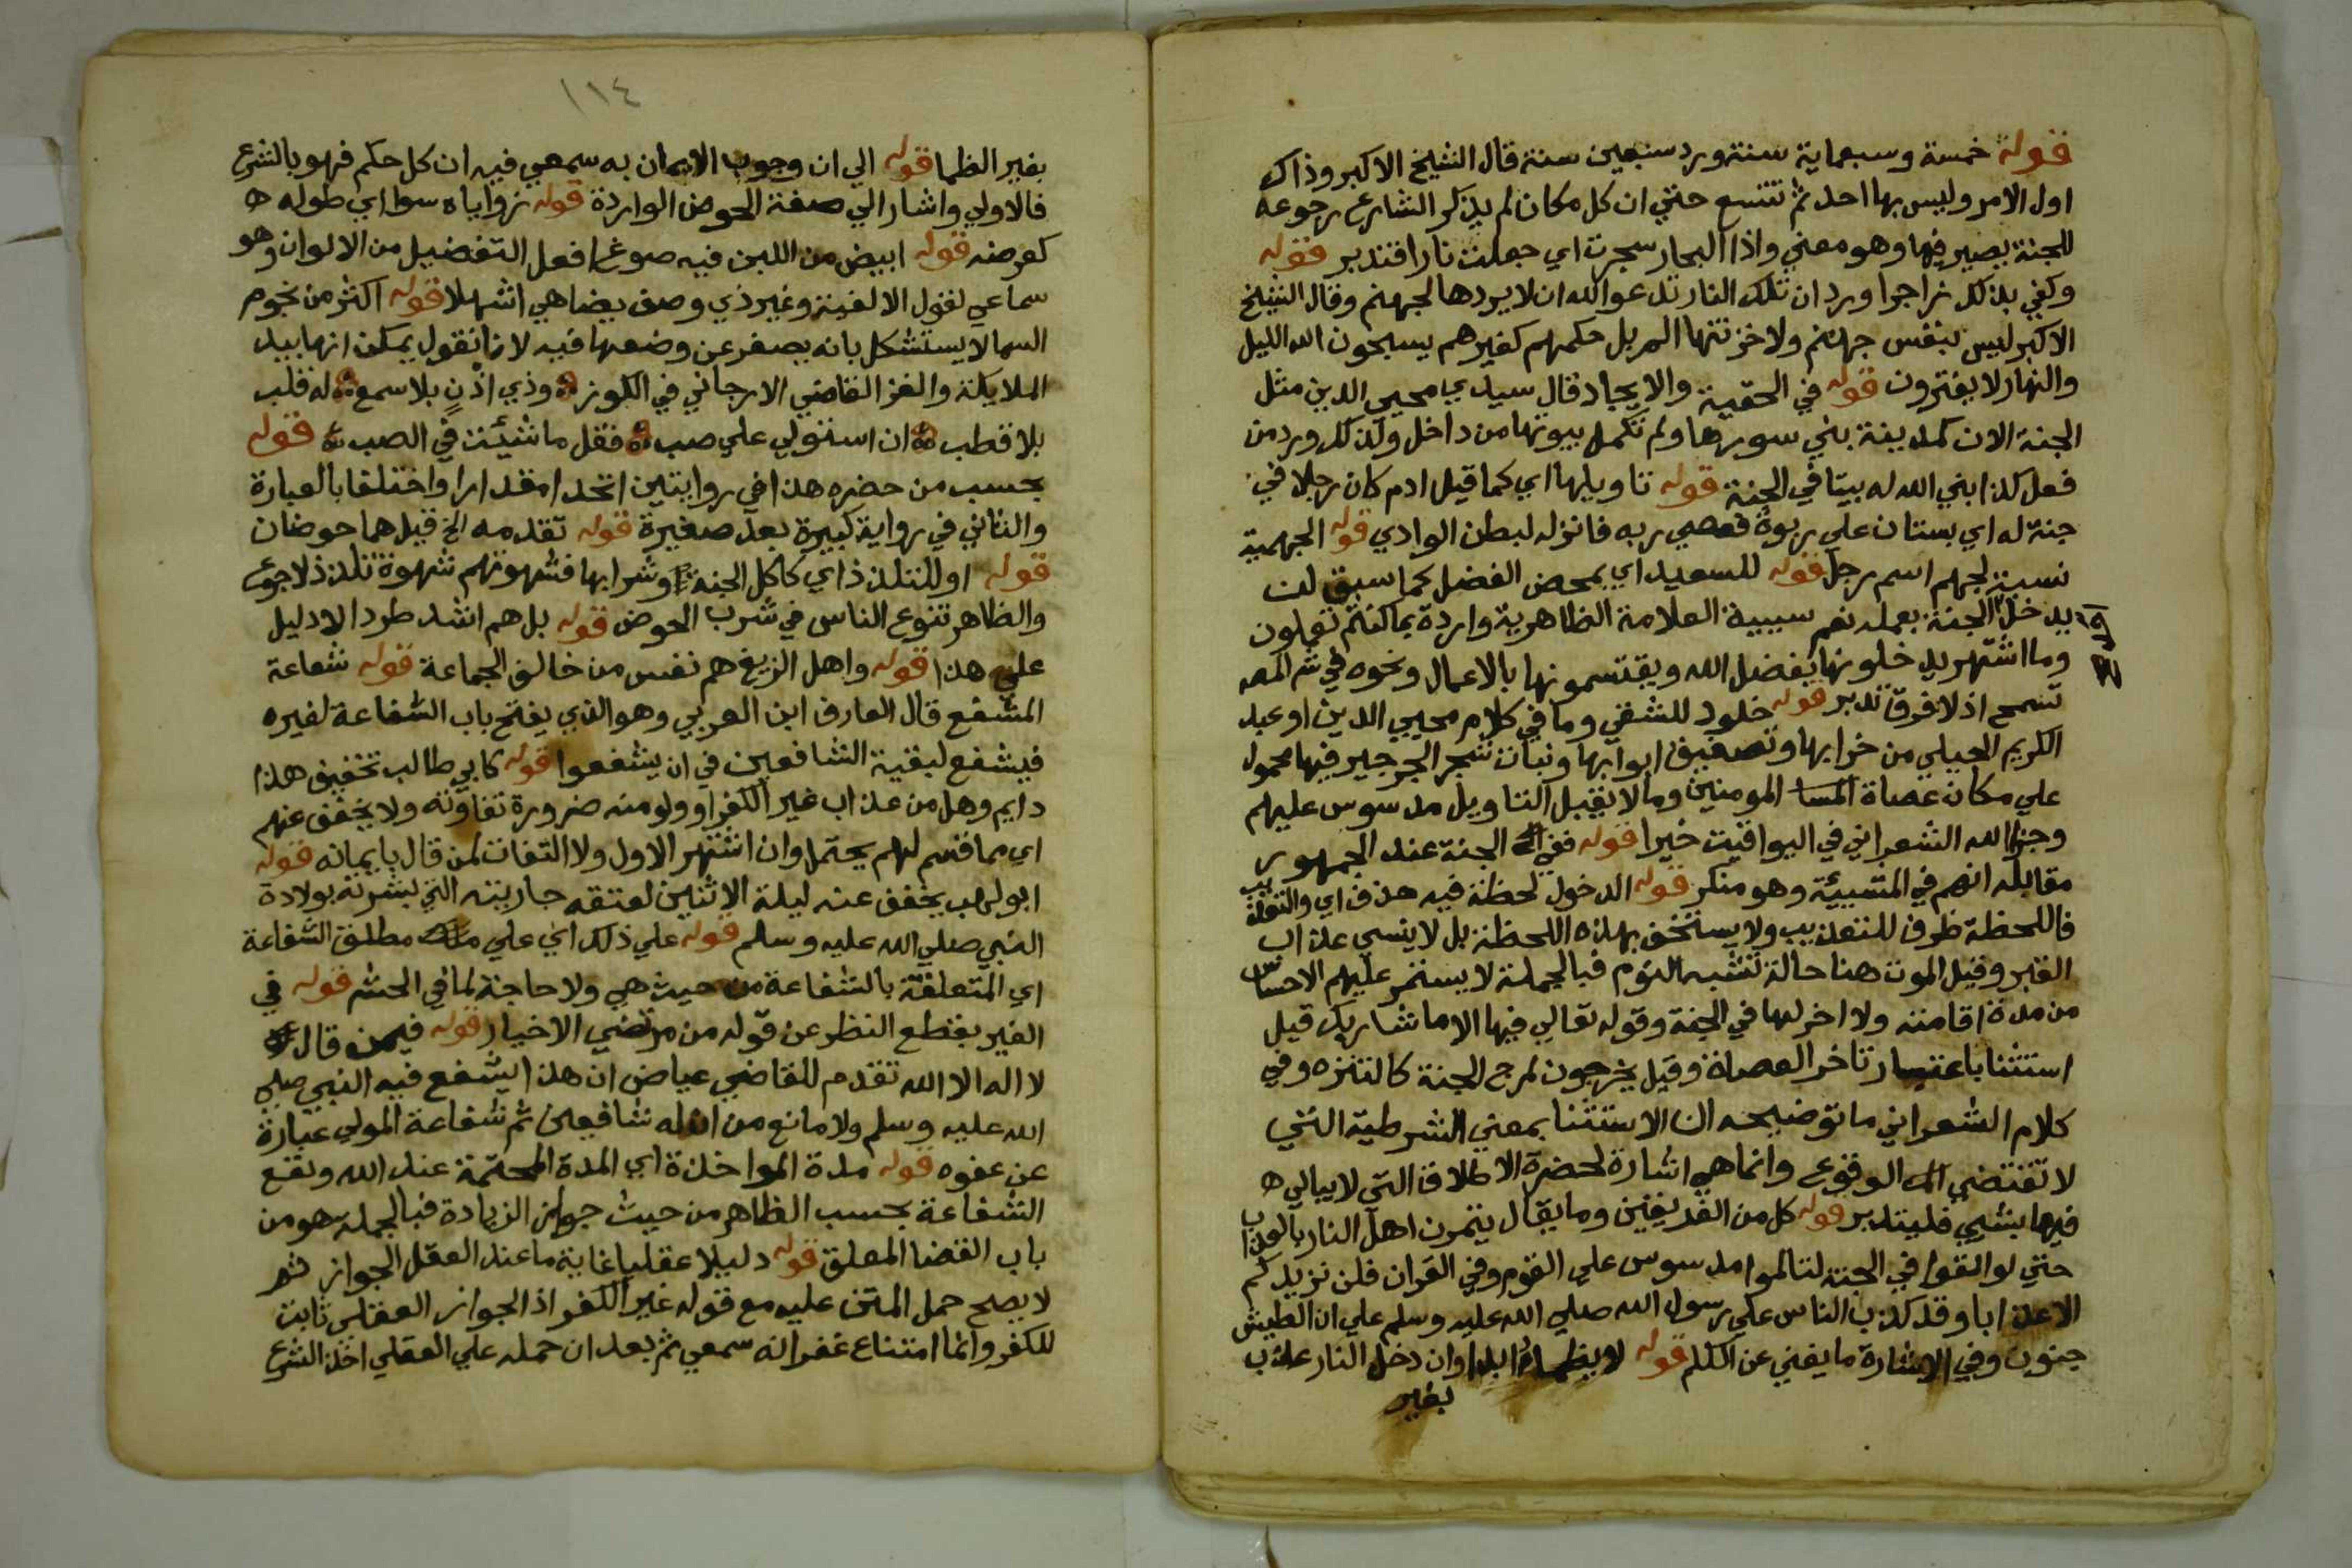 قوله خمسة وسبعماية سنة ورد سبعين سنة قال الشيخ الاكبر وذاك
اول الامر وليس بها احد ثم تتسع حتي ان كل مكان لم يذكر الشارع رجوعه
للجنة يصير فيها وهو معني واذا البحار سجرت اي جعلت نارا فتدبر قوله
وكفي بذلك زاجرا ورد ان تلك النار تدعو الله ان لا يردها لجهنم وقال الشيخ
الاكبر ليس بنفس جهنم ولا خزنتها الم بل حكمهم كغيرهم يسبحون الله الليل
والنهار لا يفترون قوله في الحقية والايجاد قال سيدي محيي الدين مثل
الجنة الان كمدينة بني سورها ولم تكمل بيوتها من داخل وكذلك ورد من
فعل كذا بني الله له بيتا في الجنة قوله تاويلها اي كما قيل ادم كان رجلا في
جنة له اي بستان علي ربوة فعصي ربه فانزله لبطن الوادي قوله الجهمية
نسبة لجهم اسم رجل قوله للسعيد اي بمحض الفضل كما سبق لن
يدخل الجنة بعمله نعم سببية العلامة الظاهرية واردة بما كنتم تعملون
وما اشتهر يدخلونها بفضل الله ويقتسمونها بالاعمال ونحوه في شم المص
تسمح اذ لا فرق تدبر قوله خلود للشقي وما في كلام محيي الدين او عبد
الكريم الجيلي من خرابها وتصفيق ابوابها ونبات شجر الجرجير فيها محمول
علي مكان عصاة المومنين وما لا يقبل التاويل مدسوس عليهم
وجزا الله الشعراني في اليواقيت خيرا قوله ففي الجنة عند الجمهور
مقابله انهم في المشيئة وهو منكر قوله الدخول لحظة فيه حذف اي والتعذيب
فاللحظة ظرف للتعذيب ولا يستخف بهذه اللحظة بل لا ينسي عذاب
القبر وقيل الموت هنا حالة تشبه النوم فبالجملة لا يستمر عليهم الاحساس
من مدة اقامته ولا اخر لها في الجنة وقوله تعالي فيها الا ما شا ربك قيل
استثنا باعتبار تاخر العصاة وقيل يخرجون لمرج الجنة كالتنزه وفي
كلام الشعراني ما توضيحه ان الاستثنا بمعني الشرطية التي
لا تقتضي الوقوع وانما هي اشارة لحضرة الاطلاق التي لا يبالي ه
فيها بشي فليتدبر قوله كل من الفريقين وما يقال يتمرن اهل النار بالعذاب
حتي لو القوا في الجنة لتالموا مدسوس علي القوم وفي القران فلن نزيدكم
الا عذابا وقد كذب الناس علي رسول الله صلي الله عليه وسلم علي ان الطيش
جنون وفي الاشارة ما يغني عن الكلم قوله لا يظما ابدا وان دخل النار عذب
بغير
١١٤
بغير الظما قوله الي ان وجوب الايمان به سمعي فيه ان كل حكم فهو بالشرع
فالاولي واشار الي صفة الحوض الواردة قوله زواياه سوا اي طوله ه
كعرضه قوله ابيض من اللبن فيه صوغ افعل التفضيل من الالوان وهو
سماعي لقول الالفية وغير ذي وصف يضاهي اشهلا قوله اكثر من نجوم
السما لا يستشكل بانه يصغر عن وضعها فيه لانا نقول يمكن انها بيد
الملايكة والغز القاضي الارجاني في الكوز ه وذي اذن بلا سمع ه له قلب
بلا قطب ه ان استولي علي صب ه فقل ما شيئت في الصب ه قوله
بحسب من حضره هذا في روايتين اتحدا مقدارا واختلفا بالعبارة
والثاني في رواية كبيرة بعد صغيرة قوله تقدمه الخ قيل هما حوضان
قوله او للتلذذ اي كاكل الجنة وشرابها فشهوتهم شهوة تلذذ لا جوع
والظاهر تنوع الناس في شرب الحوض قوله بل هم اشد طردا لا دليل
علي هذا قوله واهل الزيغ هم نفس من خالف الجماعة قوله شفاعة
المشفع قال العارف ابن العربي وهو الذي يفتح باب الشفاعة لغيره
فيشفع لبقية الشافعين في ان يشفعوا قوله كابي طالب تخفيف هذا
دايم وهل من عذاب غير الكفر او ولو منه ضرورة تفاوته ولا يخفف عنهم
اي مما قسم لهم يحتمل وان اشتهر الاول ولا التفات لمن قال بايمانه قوله
ابو لهب يخفف عنه ليلة الاثنين لعتقه جاريته التي بشرته بولادة
النبي صلي الله عليه وسلم قوله علي ذلك اي علي مطلق الشفاعة
اي المتعلقة بالشفاعة من حيث هي ولا حاجة لما في الحشم قوله في
الغير بقطع النظر عن قوله من مرتضي الاخيار قوله فيمن قال
لا اله الا الله تقدم للقاضي عياض ان هذا يشفع فيه النبي صلي
الله عليه وسلم ولا مانع من ان له شافعين ثم شفاعة المولي عبارة
عن عفوه قوله مدة المواخذة اي المدة المحتمة عند الله وتقع
الشفاعة بحسب الظاهر من حيث جواز الزيادة فبالجملة هو من
باب القضا المعلق قوله دليلا عقليا غاية ما عند العقل الجواز ثم
لا يصح حمل المتن عليه مع قوله غير الكفر اذ الجواز العقلي ثابت
للكفر وانما امتناع غفرانه سمعي ثم بعد ان حمله علي العقلي اخذ الشرع